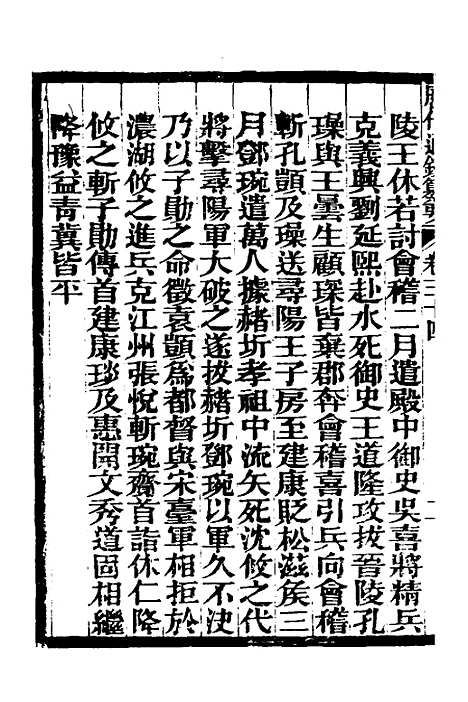 陵王休若討會稽二月遣殿中御史吳喜將精兵
克義興劉延熙赴水死御史王道隆攻拔晉陵孔
璪與王曇生顧琛皆棄郡奔會稽喜引兵向會稽
斬孔顗及璪送尋陽王子房至建康貶松滋侯三
月鄧琬遣萬人據赭圻孝祖中流矢死沈攸之代
將擊尋陽軍大破之遂拔赭圻鄧琬以軍久不決
乃以子勛之命徵袁顗為都督與宋臺軍相拒於
濃湖攸之進兵克江州張悅斬琬齎首詣休仁降
攸之斬子勛傳首建康琰及惠開文秀道固相繼
降豫益青冀皆平